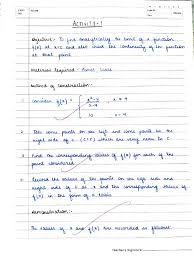 ACTIVITY-1
Objective:- To find analytically the limit of a function
f(x) at x=c and also check the continuity of the function
at that point.
Material Required:- Pencil,
Method of Construction:-
1. Consider f(x) = { , x ≠ 4
10 x = 4
2. Take some points on the left and some points on the
right side of c (c=4) which are very near to c.
3. Find the corresponding values of f(x) for each of the
points considered above.
4. Record the values of the points on the left and
right side of c as x and the corresponding values of
f(x) in the form of a table.
Demonstration:-
The values of x and f(x) are recorded as follows:
Teacher's Signature